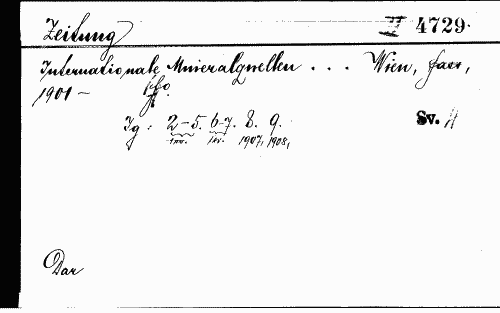 Zeitung II 4729.
Internationale Mineralquellen . . . Wien,
1901 —
Jg: 2-5. 6-7. 8. 9. Sv.
1 sv. 1 sv. 1907, 1908,
Dar